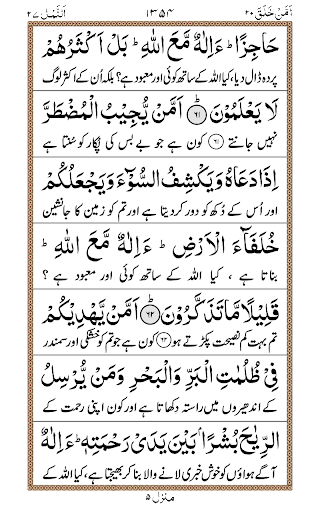 اَمَّنْ خَلَقَ ۲۰ ۱۳۵۴ اَلنَّمْل ۲۷
حَاجِزًا ؕ ءَاِلٰهٌ مَّعَ اللّٰهِ ؕ بَلْ اَكْثَرُهُمْ
پردہ ڈال دیا، کیا اللہ کے ساتھ کوئی اور معبود ہے؟ بلکہ اُن کے اکثر لوگ
لَا يَعْلَمُوْنَ ؕ﴿۶۱﴾ اَمَّنْ يُّجِيْبُ الْمُضْطَرَّ
نہیں جانتے ﴿۶۱﴾ کون ہے جو بے بس کی پُکار کو سُنتا ہے
اِذَا دَعَاهُ وَيَكْشِفُ السُّوْٓءَ وَيَجْعَلُكُمْ
اور اُس کے دُکھ کو دور کر دیتا ہے اور تم کو زمین کا جانشین
خُلَفَآءَ الْاَرْضِ ؕ ءَاِلٰهٌ مَّعَ اللّٰهِ ؕ
بناتا ہے ، کیا اللہ کے ساتھ کوئی اور معبود ہے ؟
قَلِيْلًا مَّا تَذَكَّرُوْنَ ؕ﴿۶۲﴾ اَمَّنْ يَّهْدِيْكُمْ
تم بہت کم نصیحت پکڑتے ہو ﴿۶۲﴾ کون ہے جو تم کو خشکی اور سمندر
فِيْ ظُلُمٰتِ الْبَرِّ وَالْبَحْرِ وَمَنْ يُّرْسِلُ
کے اندھیروں میں راستہ دکھاتا ہے اور کون اپنی رحمت کے
الرِّيٰحَ بُشْرًاۢ بَيْنَ يَدَيْ رَحْمَتِهٖ ؕ ءَاِلٰهٌ
آگے ہواؤں کو خوش خبری لانے والا بنا کر بھیجتا ہے، کیا اللہ کے
منزل ۵